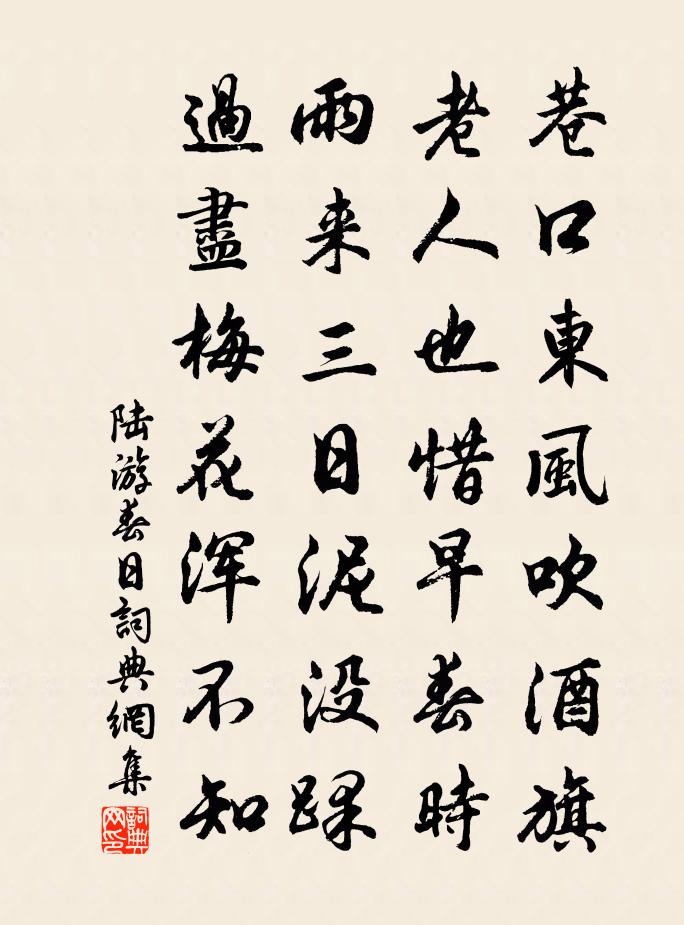 巷口東風吹酒旗
老人也惜早春時
雨来三日泥没踝
過盡梅花浑不知
陆游春日詞典網集
詞典網印